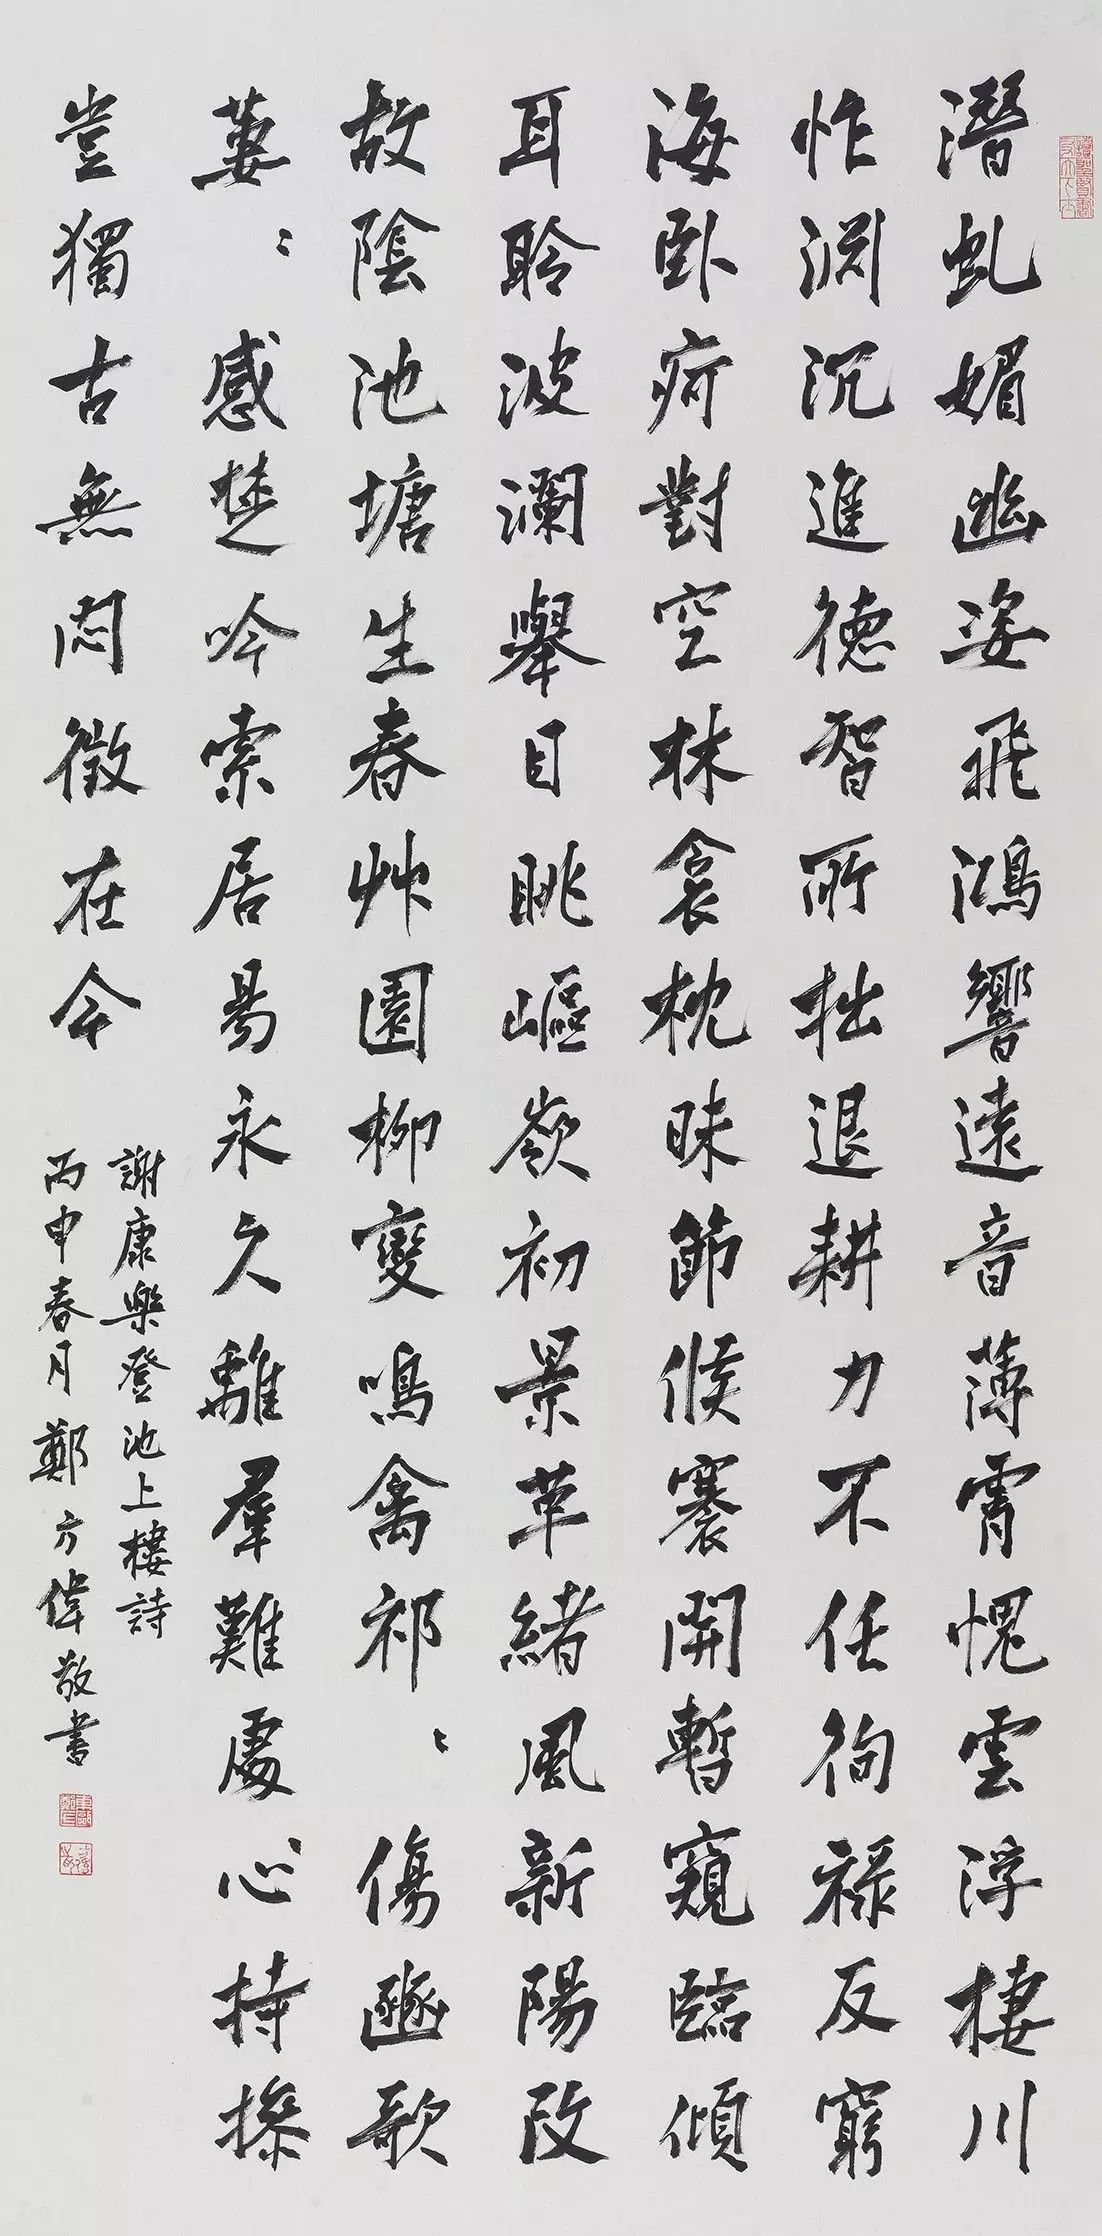 潛虬媚幽姿飛鴻響遠音薄霄愧雲浮棲川
怍淵沉進德智所拙退耕力不任徇祿反窮
海臥痾對空林衾枕昧節候褰開暫窺臨傾
耳聆波瀾舉目眺嶇嶔初景革緒風新陽改
故陰池塘生春艸園柳變鳴禽祁〻傷豳歌
萋〻感楚吟索居易永久離羣難處心持操
豈獨古無悶徵在今
謝康樂登池上樓詩
丙申春月鄭方偉敬書